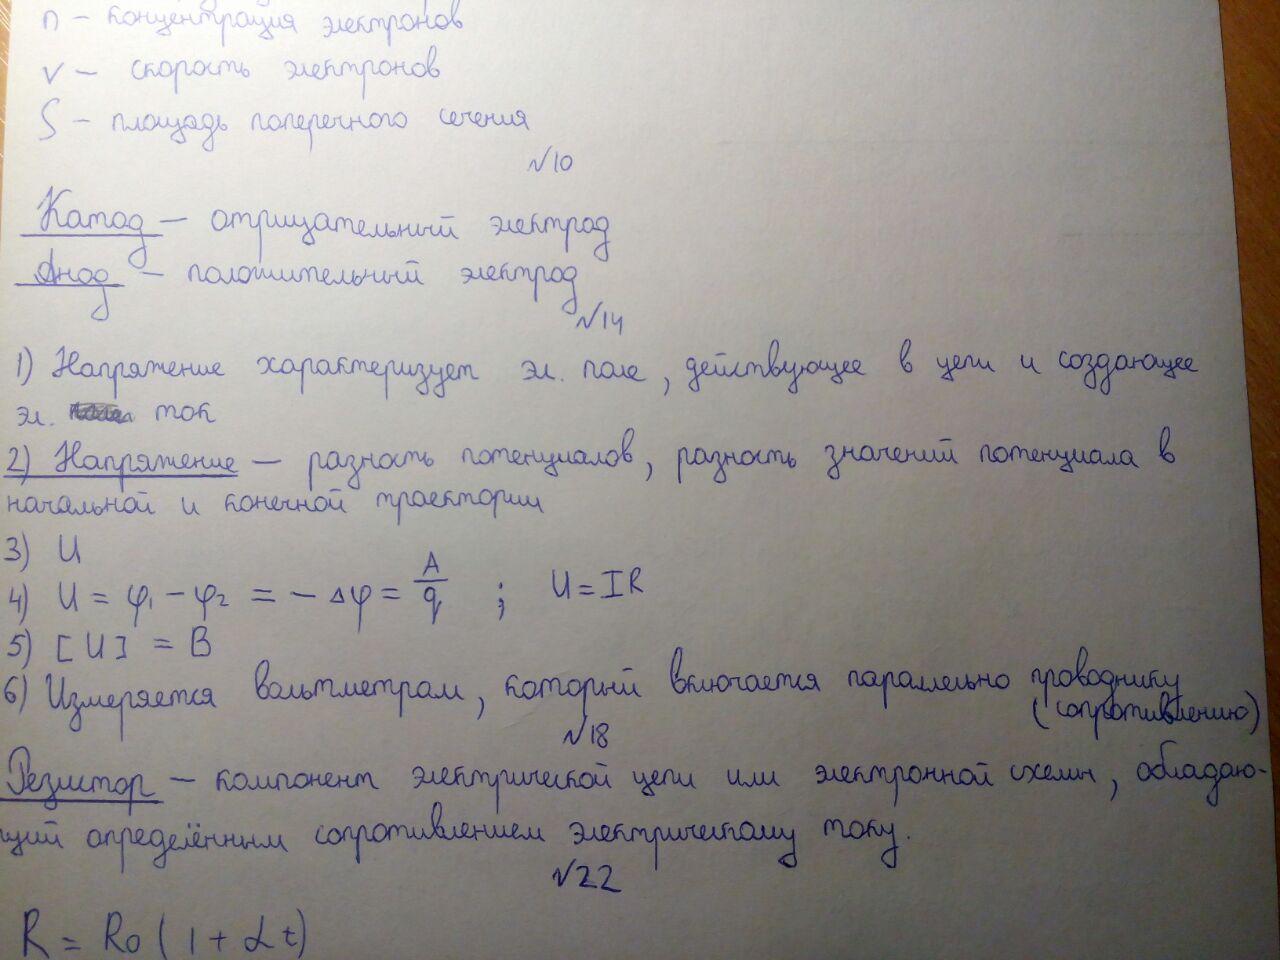 n – концентрация электронов
v – скорость электронов
S – площадь поперечного сечения
№10
Катод – отрицательный электрод
Анод – положительный электрод
№14
1) Напряжение характеризует эл. поле, действующее в цепи и создающее
эл. ток
2) Напряжение – разность потенциалов, разность значений потенциала в
начальной и конечной траектории
3) U
4) U = φ₁ – φ₂ = – Δφ = A/q ; U = IR
5) [U] = В
6) Измеряется вольтметрам, который включается параллельно проводнику
(сопротивлению)
№18
Резистор – компонент электрической цепи или электронной схемы, обладаю-
щий определённым сопротивлением электрическому току.
№22
R = R₀ (1 + αt)